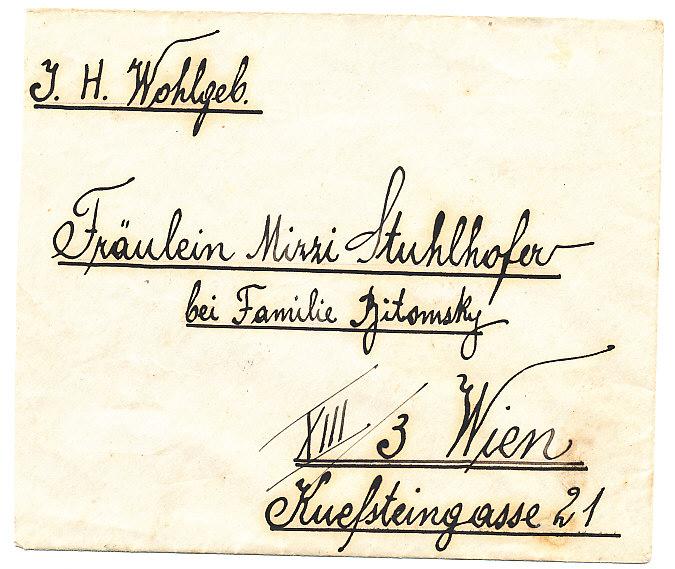 I. H. Wohlgeb.
Fräulein Mizzi Stuhlhofer
bei Familie Bitomsky
XIII/3 Wien
Kuefsteingasse 21